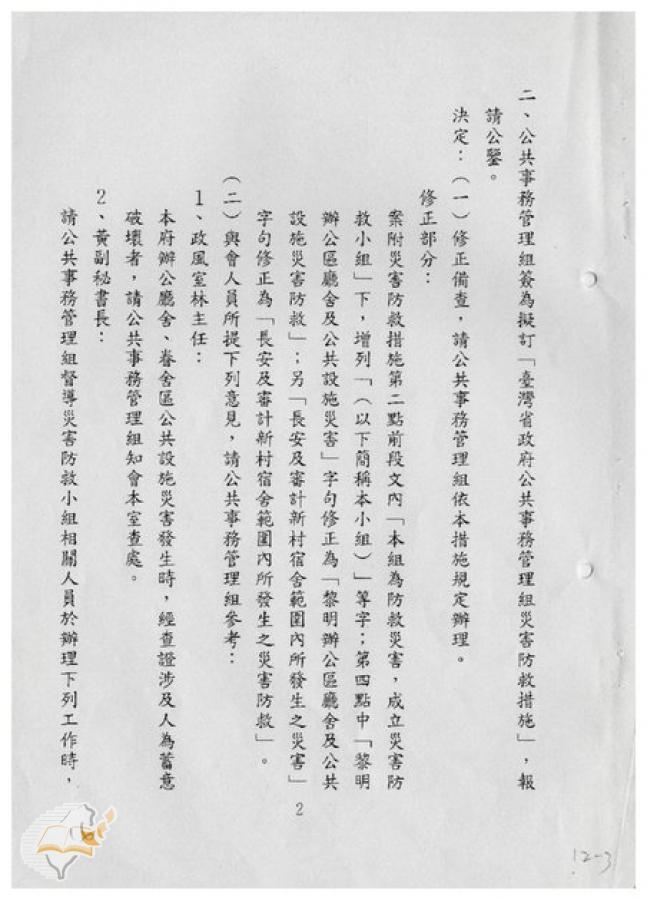 二、公共事務管理組簽為擬訂「臺灣省政府公共事務管理組災害防救措施」，報
請公鑒。
決定：（一）修正備查，請公共事務管理組依本措施規定辦理。
修正部分：
案附災害防救措施第二點前段文內「本組為防救災害，成立災害防
救小組」下，增列「（以下簡稱本小組）」等字；第四點中「黎明
辦公區廳舍及公共設施災害」字句修正為「黎明辦公區廳舍及公共
設施災害防救」；另「長安及審計新村宿舍範圍內所發生之災害」
字句修正為「長安及審計新村宿舍範圍內所發生之災害防救」。
（二）與會人員所提下列意見，請公共事務管理組參考：
1、政風室林主任：
本府辦公廳舍、眷舍區公共設施災害發生時，經查證涉及人為蓄意
破壞者，請公共事務管理組知會本室查處。
2、黃副秘書長：
請公共事務管理組督導災害防救小組相關人員於辦理下列工作時，
2
12-3